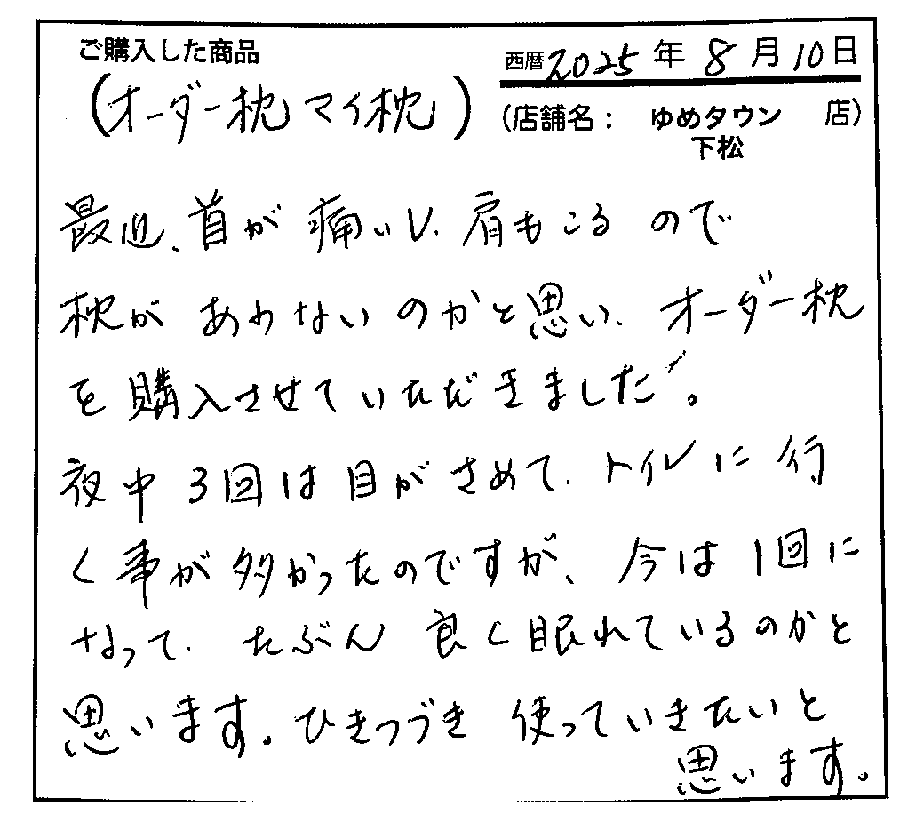 ご購入した商品
西暦 2025 年 8 月 10 日
(オーダー枕 マイ枕)
(店舗名: ゆめタウン 店)
下松
最近、首が痛いし、肩もこるので
枕があわないのかと思い、オーダー枕
を購入させていただきました。
夜中3回は目がさめて、トイレに行
く事が多かったのですが、今は1回に
なって、たぶん良く眠れているのかと
思います。ひきつづき使っていきたいと
思います。